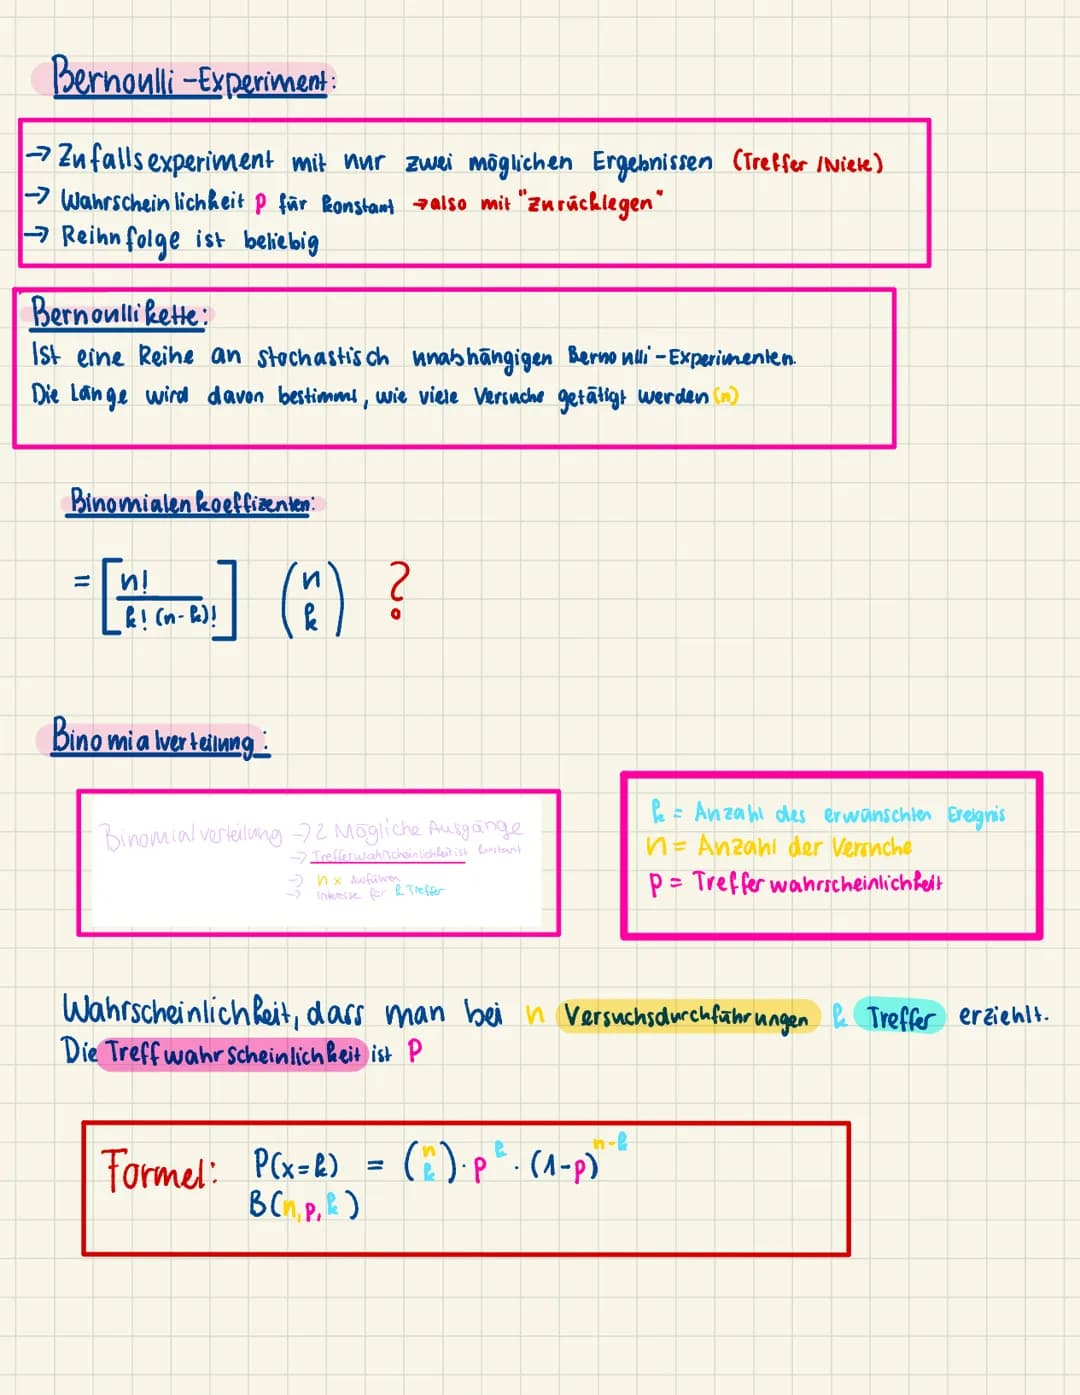 Bernoulli-Experiment:
→ Zufallsexperiment mit nur zwei möglichen Ergebnissen (Treffer /Niete)
→ Wahrscheinlichkeit p für konstant → also mit "Zurücklegen"
→ Reihnfolge ist beliebig
Bernoullikette:
Ist eine Reihe an stochastisch unabhängigen Bernoulli-Experimenten.
Die Länge wird davon bestimmt, wie viele Versuche getätigt werden (n)
Binomialenkoeffizenten:
= [n! / k! (n-k)!] (n k) ?
Binomialverteilung:
Binomialverteilung → 2 Mögliche Ausgänge
→ Trefferwahrscheinlichkeit ist konstant
→ n x Ausfüren
→ Interesse für k Treffer
k = Anzahl des erwünschten Ereignis
n = Anzahl der Versuche
p = Trefferwahrscheinlichkeit
Wahrscheinlichkeit, dass man bei n Versuchsdurchführungen k Treffer erziehlt.
Die Treffwahrscheinlichkeit ist p
Formel: P(x=k) = (n k) · p^k · (1-p)^n-k
B(n, p, k)